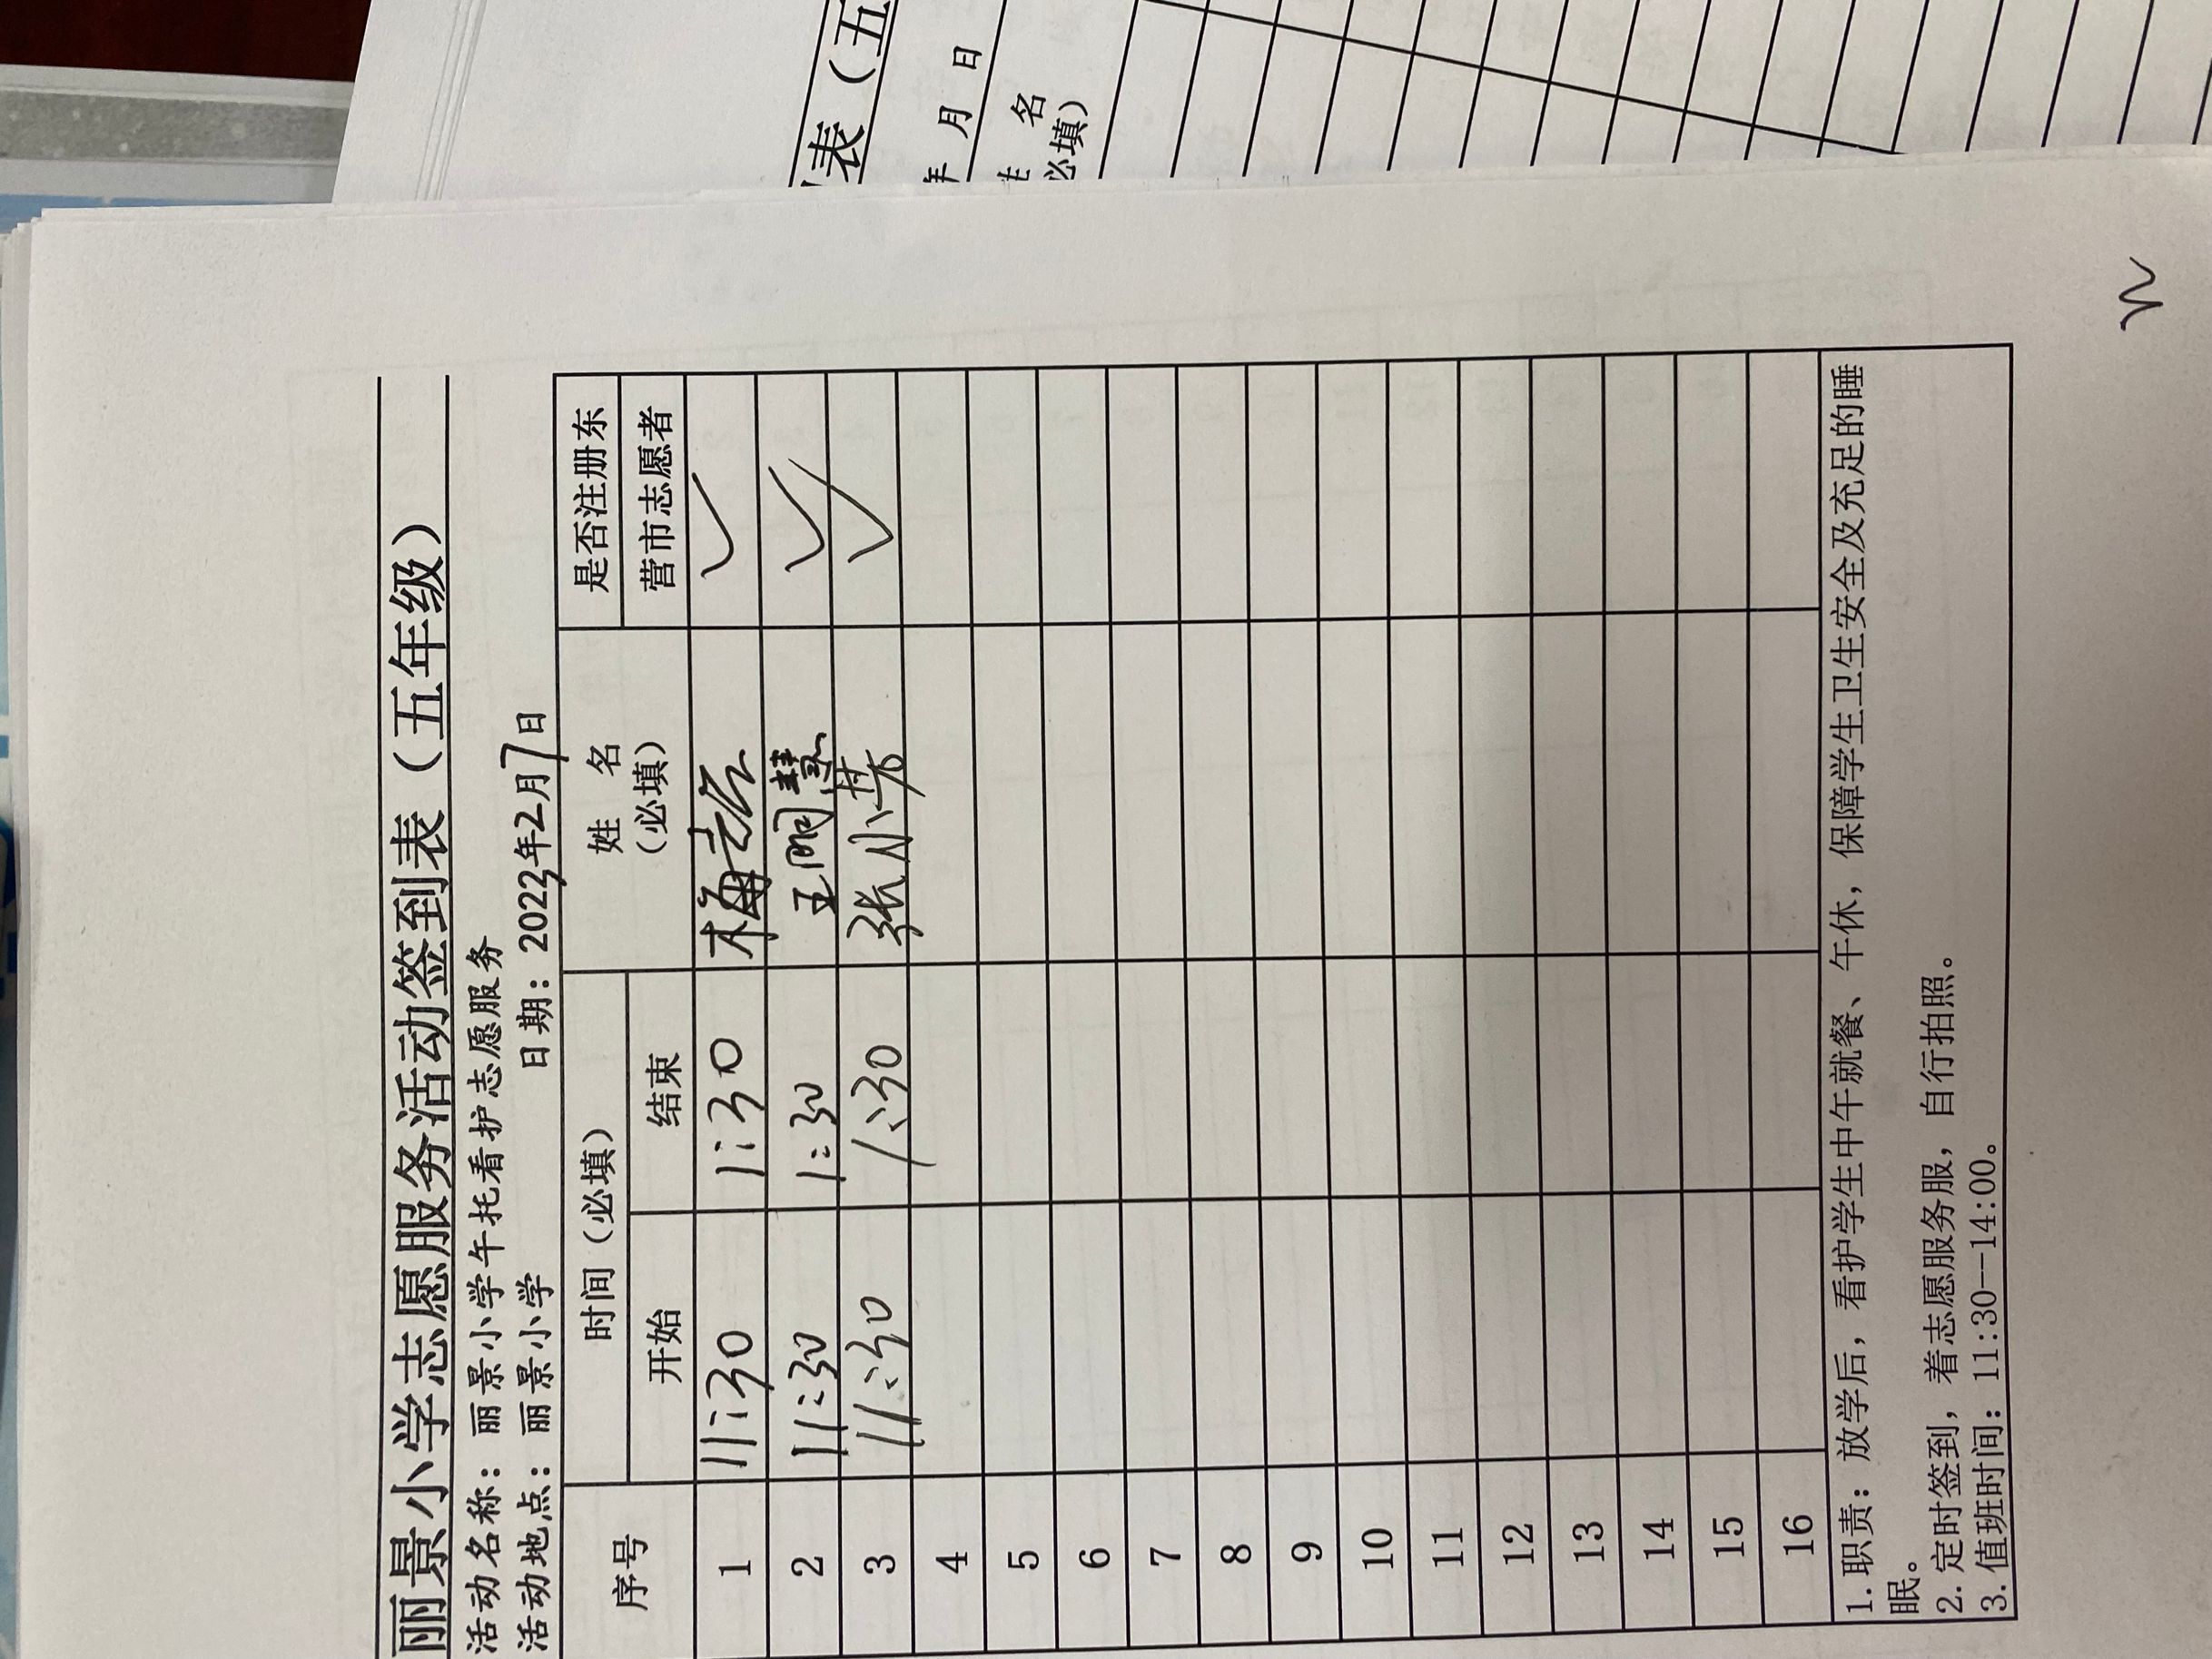 丽景小学志愿服务活动签到表（五年级）
活动名称：丽景小学午托看护志愿服务
活动地点：丽景小学 日期：2023年2月7日
序号 时间（必填） 姓名（必填） 是否注册东营市志愿者
开始 结束
1 11:30 1:30 梅 ✓
2 11:30 1:30 王丽慧 ✓
3 11:30 1:30 张小芳 ✓
4
5
6
7
8
9
10
11
12
13
14
15
16
1.职责：放学后，看护学生中午就餐、午休，保障学生卫生安全及充足的睡
眠。
2.定时签到，着志愿服务服，自行拍照。
3.值班时间：11:30--14:00。
表（五
年 月 日
名
必填）